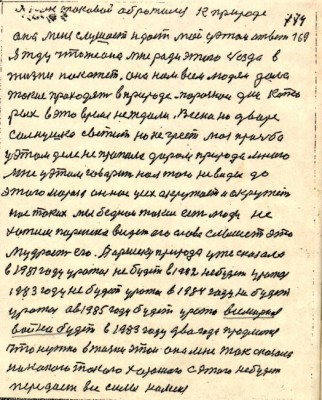 я к ней таковой обротился к природе
она мене слушает и дает мой уэтом ответ 169
Я жду что же она мне ради этого года в
жизни покажет, она нам всем людям дала
такие проходят в природе морозной дни кото
рых в это время не ждали. Весна но двоце
солнушко светит но не греет моя прозьба
у этом деле не пропала даром природа много
мне у этом говорит нам того не видеть до
этого мороза он нас усех окружает и окружит
нас таких мы бедном такия есть люди не
хотим паршека видеть его слова слышать это
мудрость его. Паршеку природа уже сказала
в 1981 году урожая не будет в 1982 не будет урожая
1983 году не будет урожая в 1984 году не будет
урожая а в 1985 году будет урожай всемирная
война будет в 1983 году два года продлится
что нужно в жизни этой она мне так сказала
никакого такого хорошего с этого не будет
передает все силы на мене
174